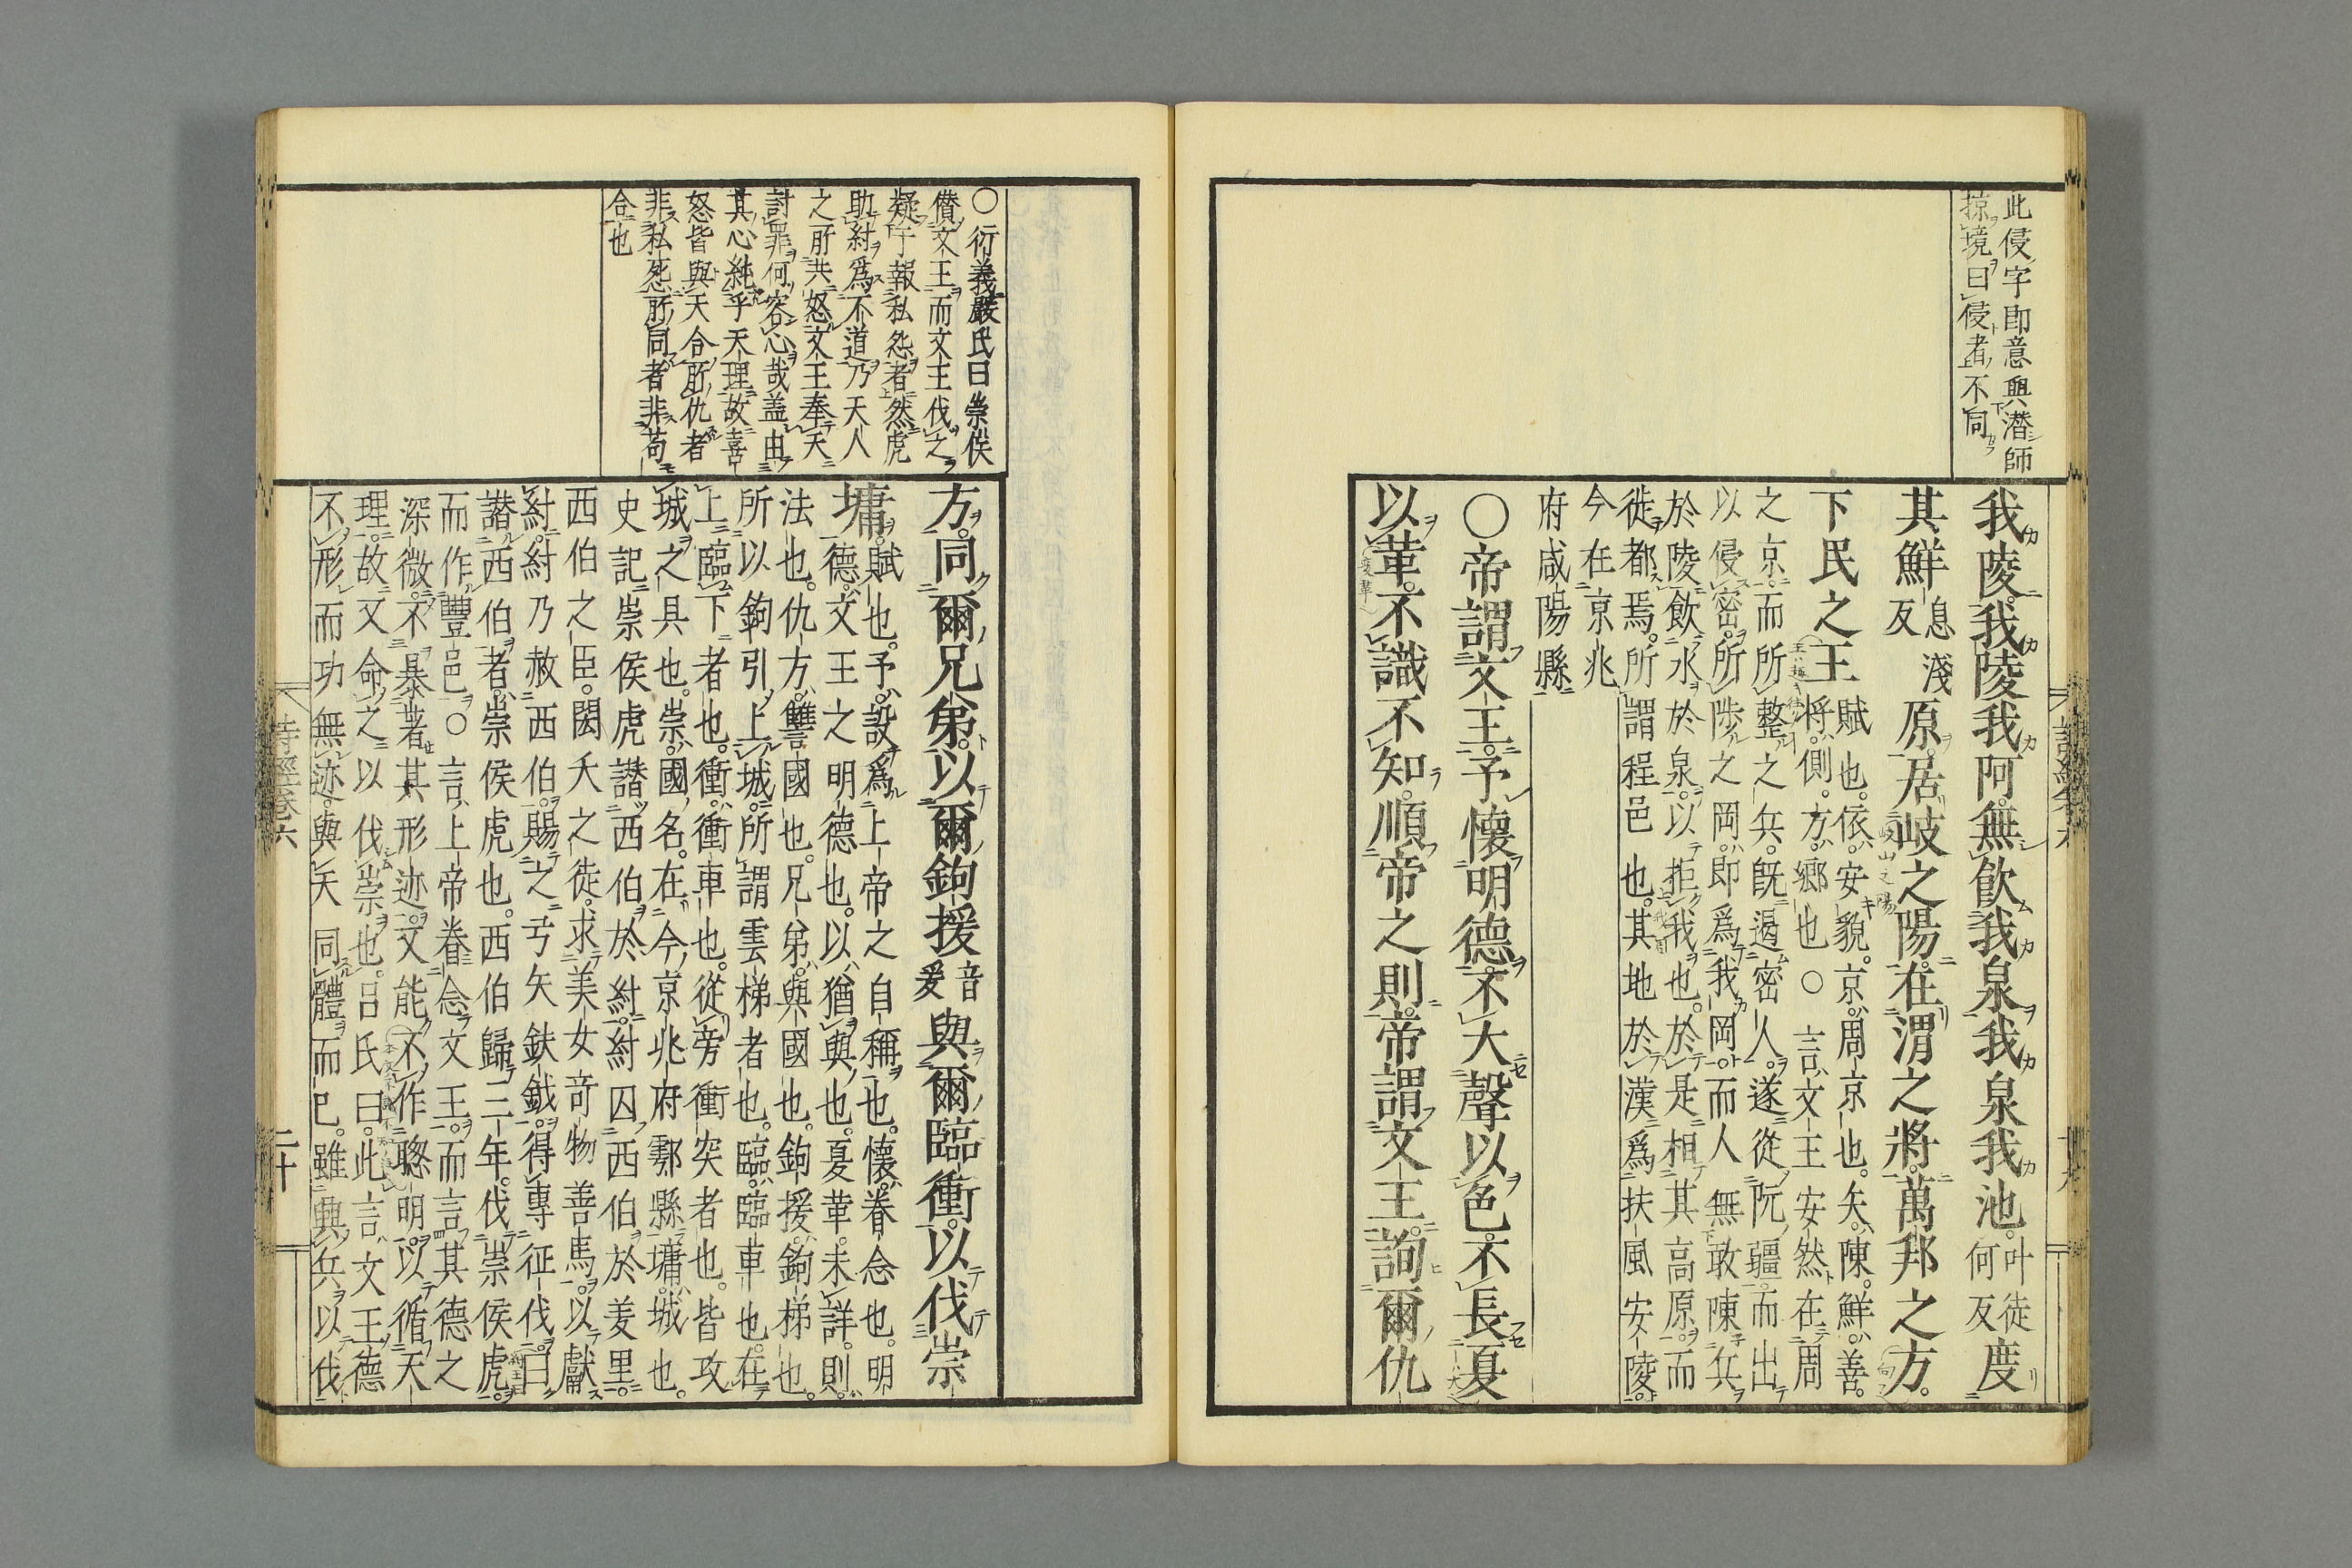 此侵字即意與潛師
掠境曰侵者不同
我陵我陵我阿無飲我泉我泉我池叶徒何反度
其鮮息淺反原居岐之陽在渭之將萬邦之方
下民之王賦也依安貌京周京也矢陳鮮善
將側方鄉也○言文王安然在周
之京而所整之兵既遏密人遂從阮疆而出
以侵密所陟之岡即爲我岡而人無敢陳兵
於陵飲水於泉以拒我也於是相其高原而
徙都焉所謂程邑也其地於漢爲扶風安陵
今在京兆
府咸陽縣
○帝謂文王予懷明德不大聲以色不長夏
以革不識不知順帝之則帝謂文王詢爾仇
○衍義嚴氏曰崇侯
僣文王而文王伐之
疑于報私怨者然虎
助紂爲不道乃天人
之所共怒文王奉天
討罪何容心哉盖由
其心純乎天理故喜
怒皆與天合所仇者
非私怨所同者非苟
合也
方同爾兄弟以爾鉤援音爰與爾臨衝以伐崇
墉賦也予設爲上帝之自稱也懷眷念也明
德文王之明德也以猶與也夏革未詳則
法也仇方讐國也兄弟與國也鉤援鉤梯也
所以鉤引上城所謂雲梯者也臨臨車也在
上臨下者也衝衝車也從旁衝突者也皆攻
城之具也崇國名在今京兆府鄠縣墉城也
史記崇侯虎譖西伯於紂紂囚西伯於羑里
西伯之臣閎夭之徒求美女奇物善馬以獻
紂紂乃赦西伯賜之弓矢鈇鉞得專征伐曰
譖西伯者崇侯虎也西伯歸三年伐崇侯虎
而作豐邑○言上帝眷念文王而言其德之
深微不暴著其形迹又能不作聰明以循天
理故又命之以伐崇也呂氏曰此言文王德
不形而功無迹與天同體而已雖興兵以伐
詩經卷六
二十